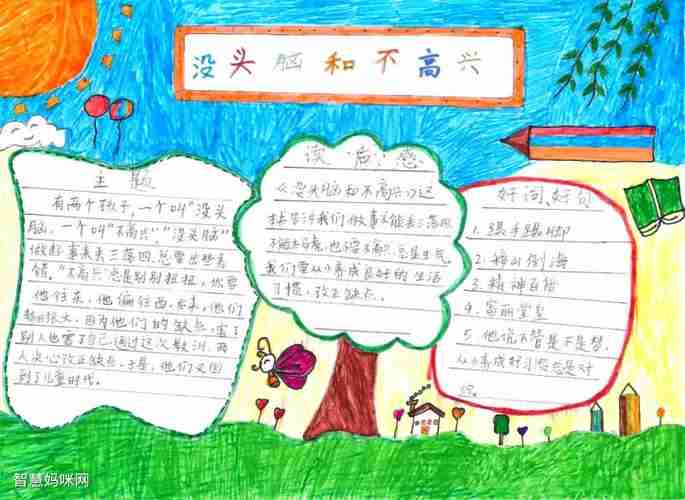 没头脑和不高兴
主题
有两个孩子,一个叫"没头
脑,一个叫"不高兴","没头脑"
做起事来丢三落四,总要出些差
错,"不高兴"总是别别扭扭,你要
他往东,他偏往西。后来,他们
长大,因为他们的缺点,害了
别人也害了自己,通过这次教训,两
人决心改正缺点,于是,他们又回
到了儿童时代。
读后感
《没头脑和不高兴》这
本书告诉我们做事不能丢三落四
不能马虎,也不要不高兴,总是生气
我们要从小养成良好的生活
习惯,改正缺点。
好词、好句
1.
2. 排山倒海
3. 精神百倍
4. 富丽堂皇
5. 他说不管是不是梦,
从小养成好习惯总是对
的。
智慧妈咪网